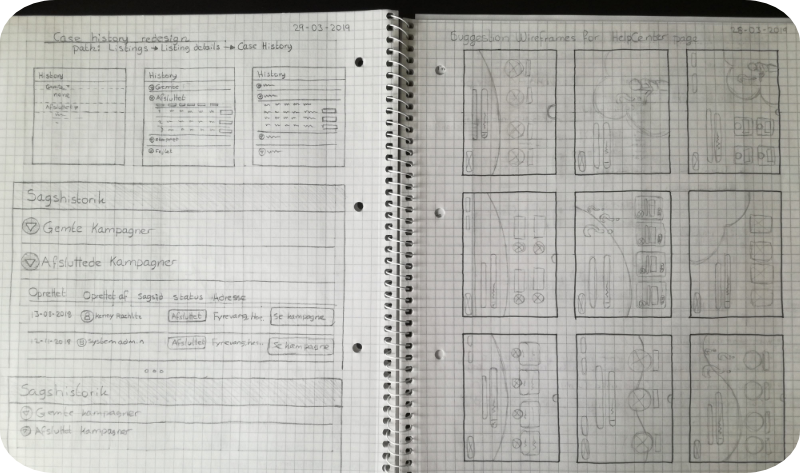 29-03-2019
Case history redesign
path: Listings → Listing details → Case History
History
Gemte
Afsluttet
History
Gemte
Afsluttet
Fejlet
History
Sagshistorik
Gemte Kampagner
Afsluttede Kampagner
Oprettet Oprettet af Sagsid status Adresse
Afsluttet Se kampagne
Systemadmin Afsluttet Se kampagne
Sagshistorik
Gemte kampagner
Afsluttet kampagner
28-03-2019
Suggestion Wireframes For HelpCenter page